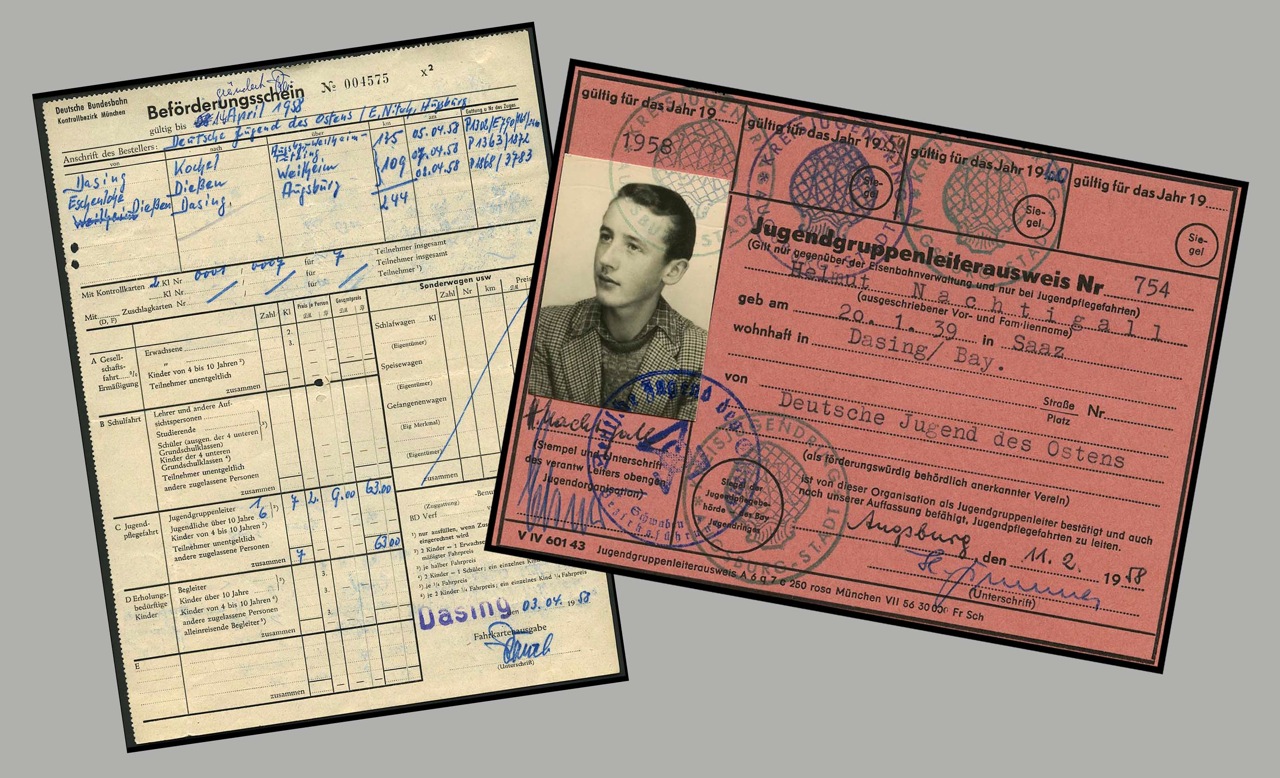 Deutsche Bundesbahn
Kontrollbezirk München
geändert
Beförderungsschein
№ 004575
x²
gültig bis 14 April 1958
Anschrift des Bestellers: Deutsche Jugend des Ostens / E.
von nach über km am Gattung u Nr des Zuges
Dasing Kochel Augsburg-Weilheim- 135 05.04.58
Tutzing
Eschenlohe Dießen Weilheim 109 07.04.58 P 1363/1872
Weilheim Dießen Dasing. Augsburg 08.04.58 P 1868/3783
244
Mit Kontrollkarten 2 Kl Nr 0001 / 0007 für 7 Teilnehmer insgesamt
Kl Nr / für Teilnehmer insgesamt
Mit Zuschlagkarten Nr / für Teilnehmer ³)
(D, F)
Sonderwagen usw
Zahl Kl Preis je Person Gesamtpreis
Zahl Nr km Preis
A Gesell-
schafts-
fahrt
Ermäßigung
Erwachsene 2.
" 3.
Kinder von 4 bis 10 Jahren ²)
Teilnehmer unentgeltlich
zusammen
Schlafwagen Kl
(Eigentümer)
Speisewagen
(Eigentümer)
Gefangenenwagen
(Eig Merkmal)
(Eigentümer)
zusammen
B Schulfahrt
Lehrer und andere Auf-
sichtspersonen
Studierende
Schüler (ausgen. der 4 unteren
Grundschulklassen)
Kinder der 4 unteren
Grundschulklassen ⁴)
Teilnehmer unentgeltlich
andere zugelassene Personen
zusammen
C Jugend-
pflegefahrt
Jugendgruppenleiter 1
Jugendliche über 10 Jahre 6 7 2. 9.00 63.00
Kinder von 4 bis 10 Jahren ²)
Teilnehmer unentgeltlich
andere zugelassene Personen
zusammen 7 63.00
D Erholungs-
bedürftige
Kinder
Begleiter
Kinder über 10 Jahre
Kinder von 4 bis 10 Jahren ⁴)
andere zugelassene Personen
alleinreisende Begleiter ⁵)
zusammen
E
zusammen
(Zuggattung)
BD Verf
¹) nur ausfüllen, wenn
eingerechnet wird
²) 2 Kinder = 1 Erwachsener
³) je halber Fahrpreis
⁴) 2 Kinder = 1 Schüler; ein einzelnes Kind
Dasing den 03.04. 1958
Fahrkartenausgabe
(Unterschrift)
gültig für das Jahr 19
1958
gültig für das Jahr 19 59
gültig für das Jahr 19 60
gültig für das Jahr 19
Sie-
gel
Sie-
gel
Sie-
gel
Jugendgruppenleiterausweis Nr 754
(Gilt nur gegenüber der Eisenbahnverwaltung und nur bei Jugendpflegefahrten)
Helmut Nachtigall
(ausgeschriebener Vor- und Familienname)
geb am 20. 1. 39 in Saaz
wohnhaft in Dasing/ Bay.
Straße
Platz
Nr.
von Deutsche Jugend des Ostens
(als förderungswürdig behördlich anerkannter Verein)
ist von dieser Organisation als Jugendgruppenleiter bestätigt und auch
nach unserer Auffassung befähigt, Jugendpflegefahrten zu leiten.
Augsburg den 11. 2. 1958
(Unterschrift)
H. Nachtigall
(Stempel und Unterschrift
des verantw Leiters obengen.
Jugendorganisation)
Siegel der
Jugendpflegebe-
hörde od des Bay
Jugendringes
V IV 601 43
Jugendgruppenleiterausweis A 6 q 7 c 250 rosa München VII 56 30 000 Fr Sch